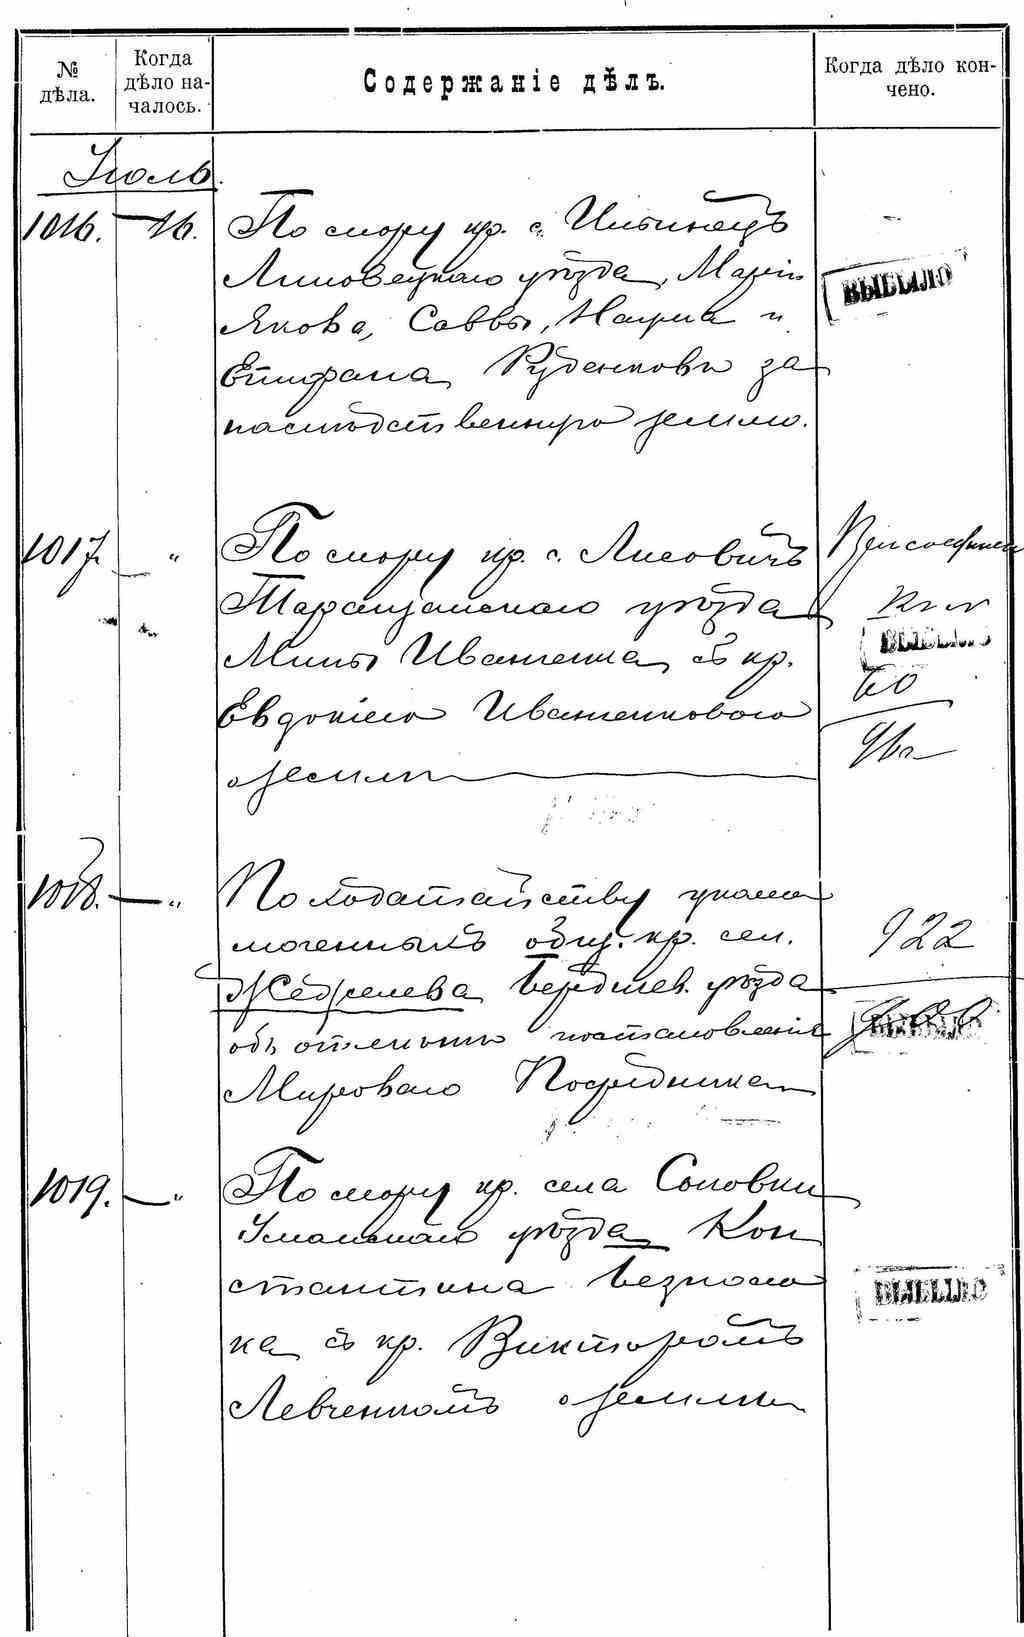 № дѣла.
Когда дѣло началось.
Содержаніе дѣлъ.
Когда дѣло кончено.
Іюль.
1016. 16. По спору кр. с. Ильинецъ
Липовецкаго уѣзда, Маріи
Якова, Саввы, Наума и
Епифана Руденковъ за
наслѣдственную землю.
ВЫБЫЛО
1017. " По спору кр. с. Лисовичъ
Таращанскаго уѣзда
Мины Иваненка съ кр.
Евдокіею Иваненковою
о земли
ВЫБЫЛО
1018. " По ходатайству уполно
моченныхъ общ. кр. сел.
Жежелева Бердичев. уѣзда
объ отмѣнѣ постановленія
Мироваго Посредника
922
ВЫБЫЛО
1019. " По спору кр. села Соловки
Уманскаго уѣзда Кон
стантина Безноso
ка съ кр. Викторомъ
Левченкомъ о земли
ВЫБЫЛО